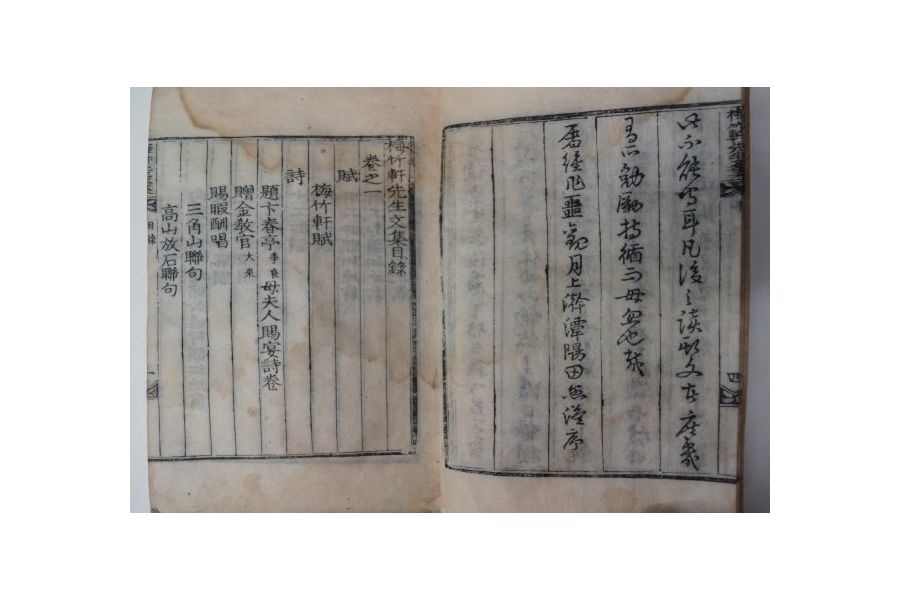 梅竹軒先生文集
四
此不能寫耳凡後之讀斯文者庶幾
有所勸勵持循而毋忽也哉
屠維作噩月上澣潭陽田愚謹序
梅竹軒先生文集目錄
卷之一
賦
梅竹軒賦
詩
題卞春亭季良母夫人賜宴詩卷
贈金敎官大來
賜暇酬唱
三角山聯句
高山放石聯句
目錄
一